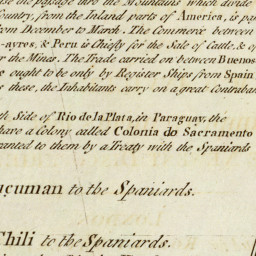 se the passage thro' the Mountains which divide
Country, from the Inland parts of America, is pa
rom December to March. The Commerce between
-ayres, & Peru is Chiefly for the Sale of Cattle, & o
or the Mines. The Trade carried on between Buenos
s ought to be only by Register Ships from Spain
s these, the Inhabitants carry on a great Contraban
th Side of Rio de la Plata, in Paraguay, the
have a Colony called Colonia do Sacramento
ranted to them by a Treaty with the Spaniards
uçuman to the Spaniards.
Chili to the Spaniards.